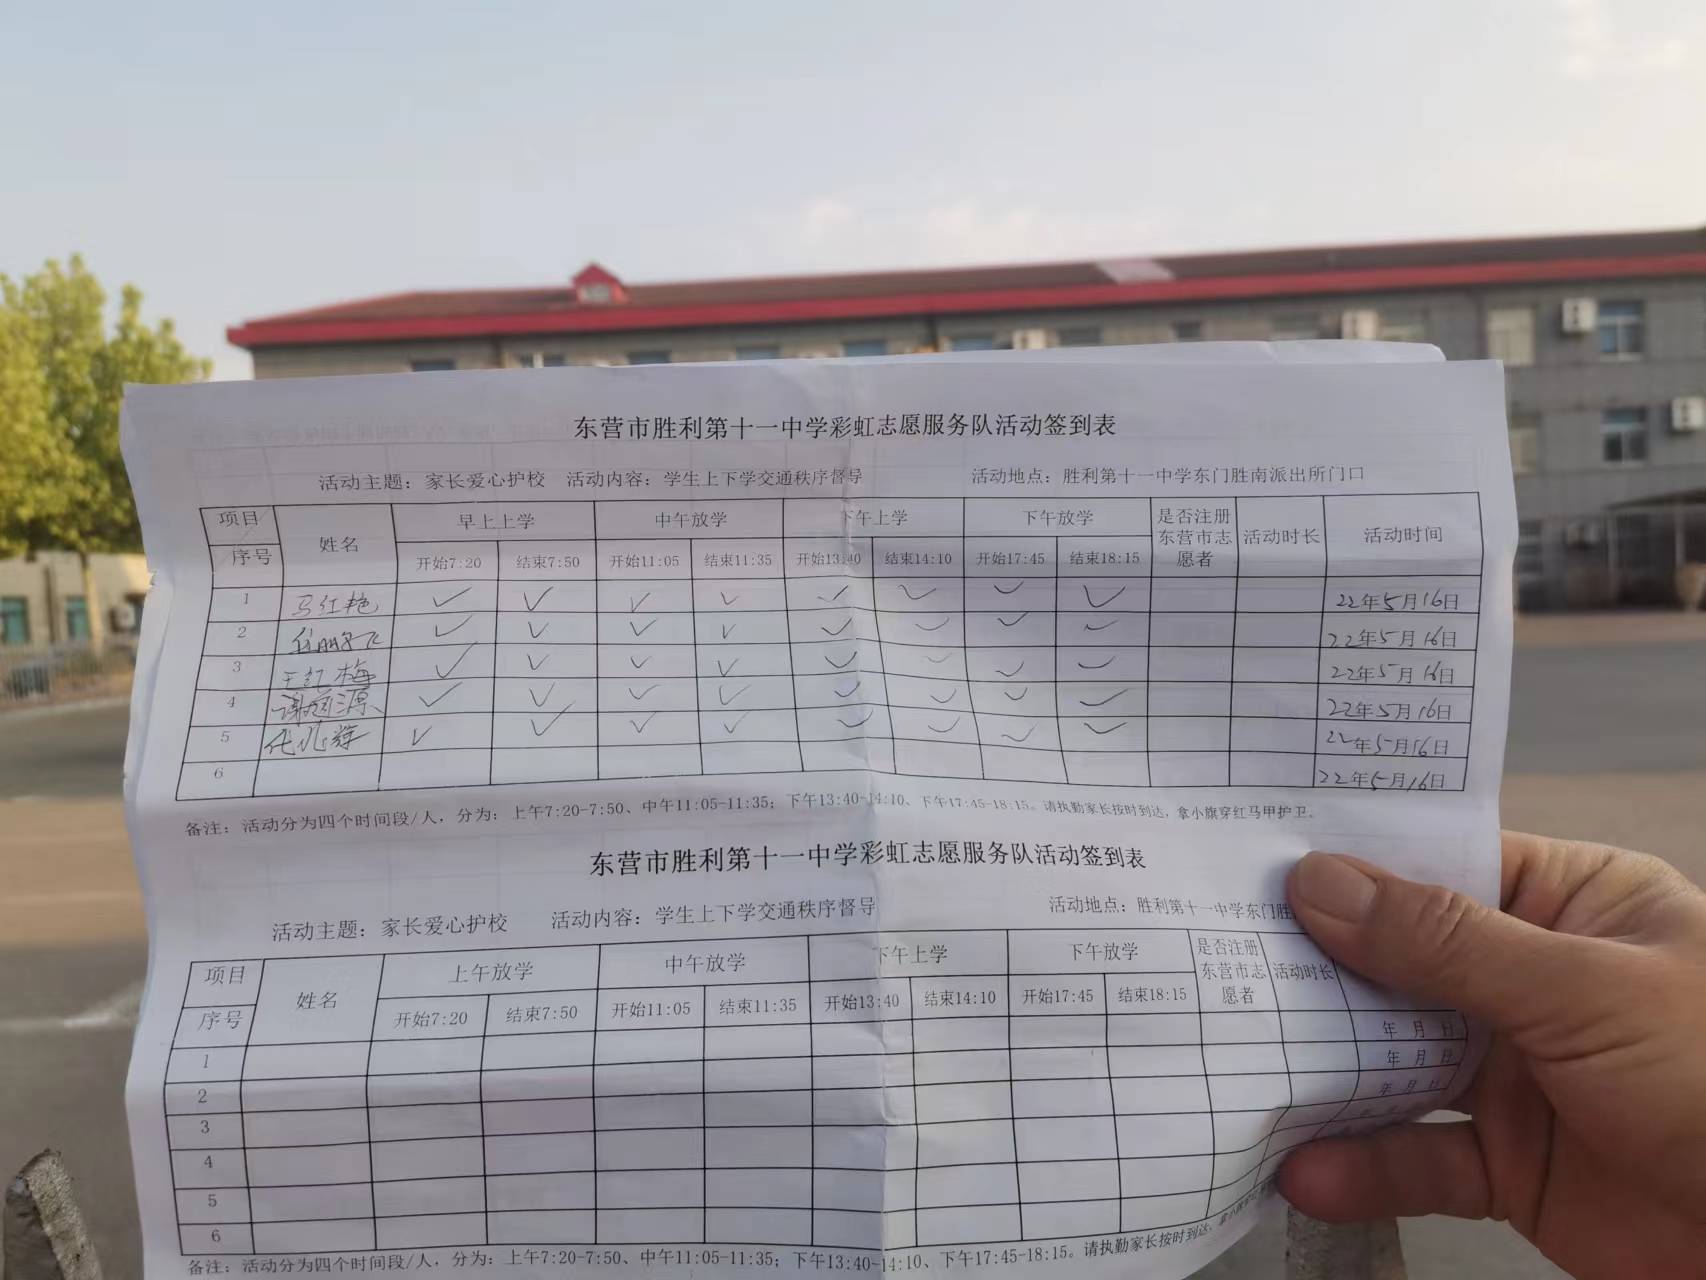 东营市胜利第十一中学彩虹志愿服务队活动签到表
活动主题：家长爱心护校 活动内容：学生上下学交通秩序督导 活动地点：胜利第十一中学东门胜南派出所门口
项目 序号 姓名 早上上学 中午放学 下午上学 下午放学 是否注册东营市志愿者 活动时长 活动时间
开始7:20 结束7:50 开始11:05 结束11:35 开始13:40 结束14:10 开始17:45 结束18:15
1 马红艳 ✓ ✓ ✓ ✓ ✓ ✓ ✓ ✓ 22年5月16日
2 ✓ ✓ ✓ ✓ ✓ ✓ ✓ ✓ 22年5月16日
3 王红梅 ✓ ✓ ✓ ✓ ✓ ✓ ✓ ✓ 22年5月16日
4 ✓ ✓ ✓ ✓ ✓ ✓ ✓ ✓ 22年5月16日
5 ✓ ✓ ✓ ✓ ✓ ✓ ✓ ✓ 22年5月16日
6 22年5月16日
备注：活动分为四个时间段/人，分为：上午7:20-7:50、中午11:05-11:35；下午13:40-14:10、下午17:45-18:15。请执勤家长按时到达，拿小旗穿红马甲护卫。
东营市胜利第十一中学彩虹志愿服务队活动签到表
活动主题：家长爱心护校 活动内容：学生上下学交通秩序督导 活动地点：胜利第十一中学东门胜
项目 序号 姓名 上午放学 中午放学 下午上学 下午放学 是否注册东营市志愿者 活动时长
开始7:20 结束7:50 开始11:05 结束11:35 开始13:40 结束14:10 开始17:45 结束18:15
1 年 月 日
2 年 月 日
3 年 月 日
4
5
6
备注：活动分为四个时间段/人，分为：上午7:20-7:50、中午11:05-11:35；下午13:40-14:10、下午17:45-18:15。请执勤家长按时到达，拿小旗